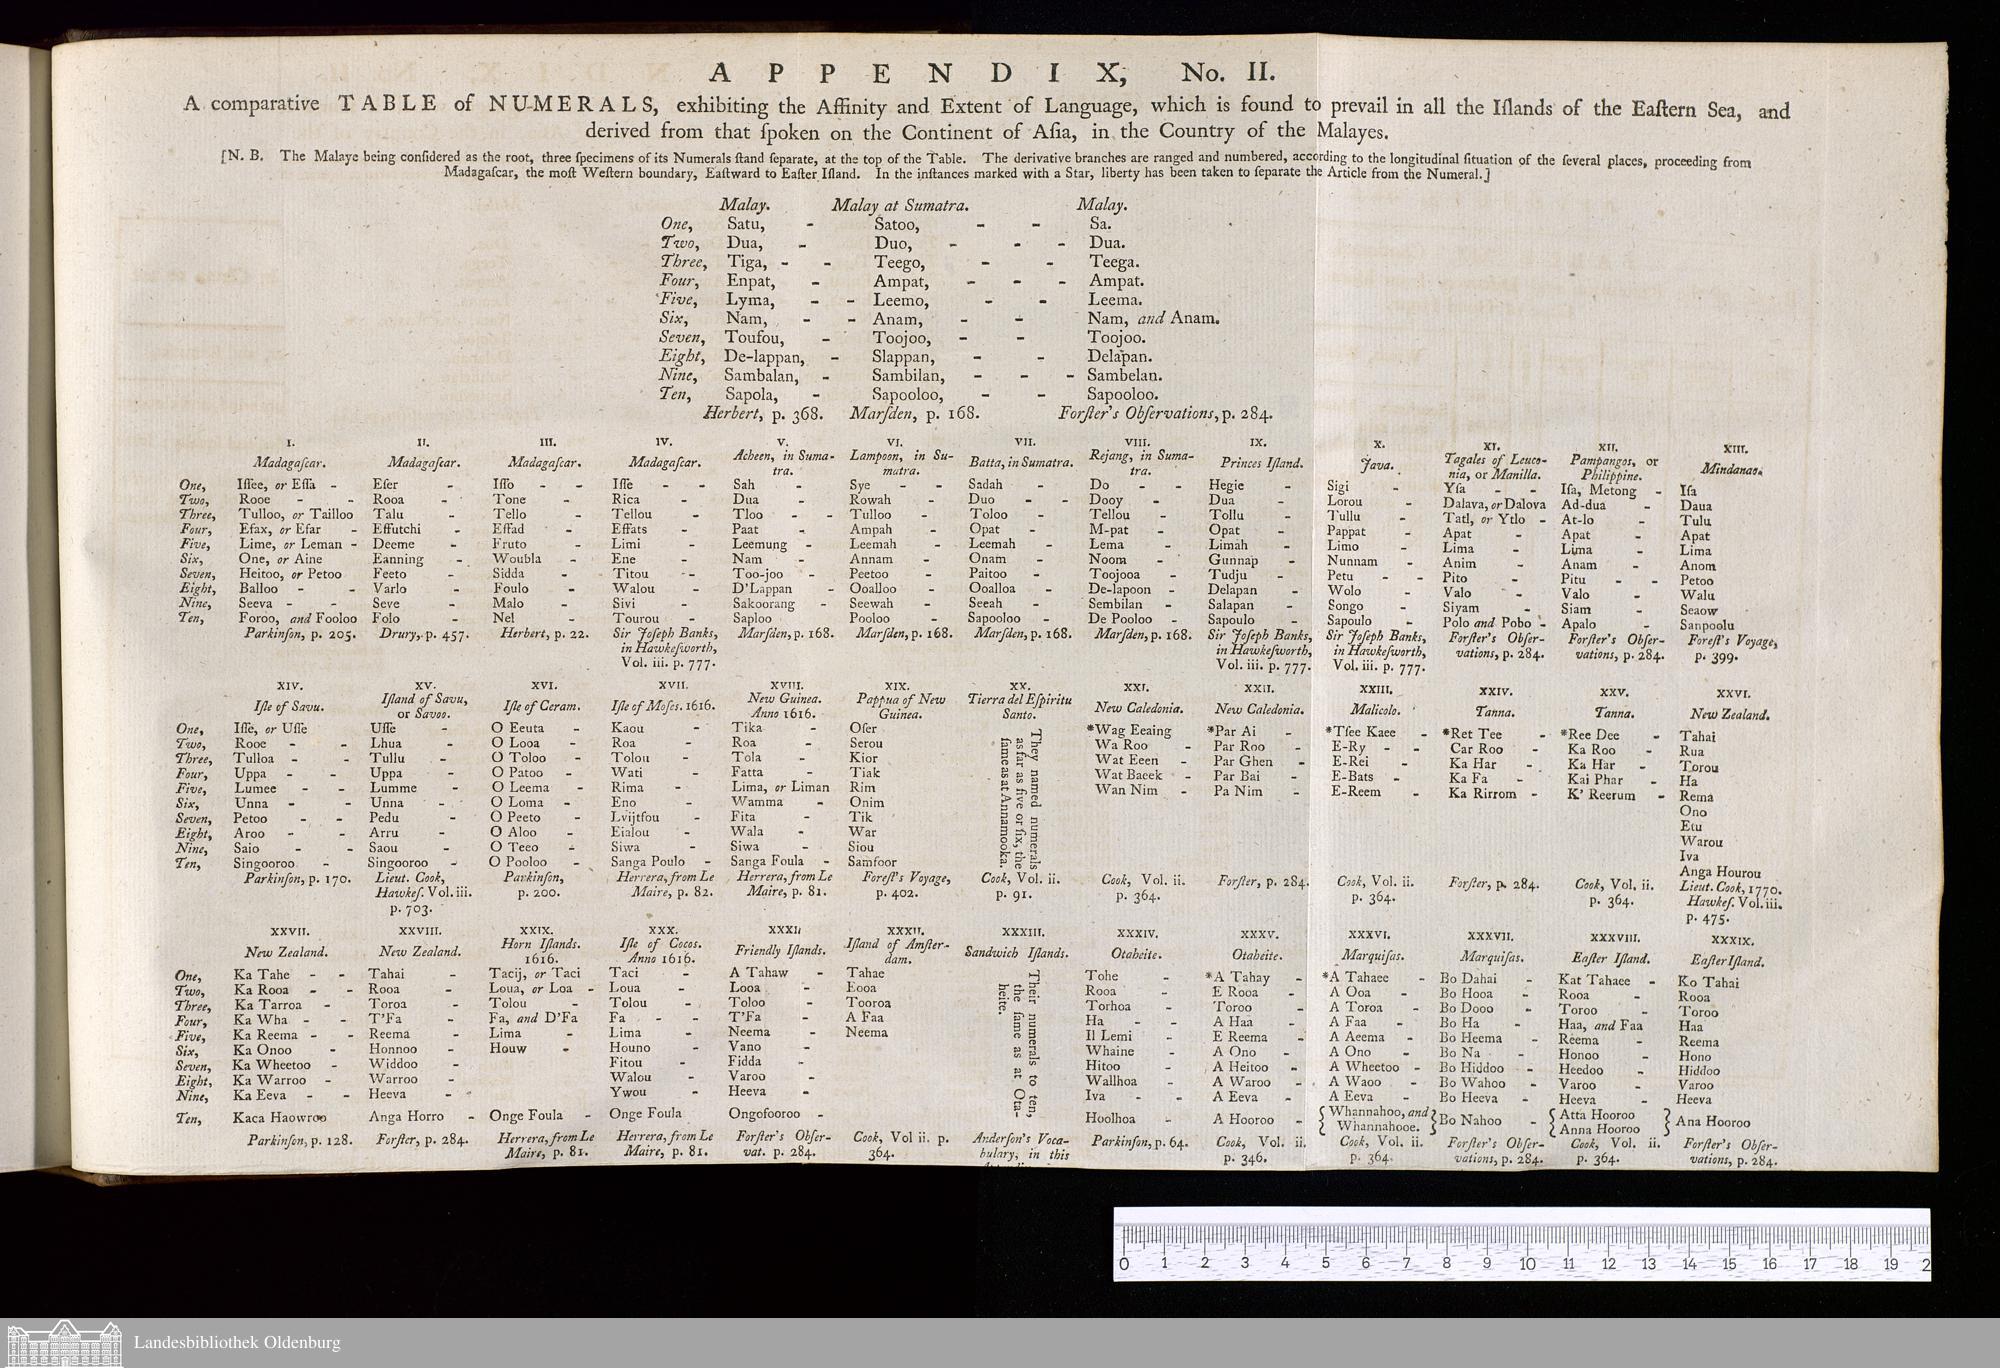 APPENDIX, No. II.
A comparative TABLE of NUMERALS, exhibiting the Affinity and Extent of Language, which is found to prevail in all the Iſlands of the Eaſtern Sea, and
derived from that ſpoken on the Continent of Aſia, in the Country of the Malayes.
[N. B. The Malaye being conſidered as the root, three ſpecimens of its Numerals ſtand ſeparate, at the top of the Table. The derivative branches are ranged and numbered, according to the longitudinal ſituation of the ſeveral places, proceeding from
Madagaſcar, the moſt Weſtern boundary, Eaſtward to Eaſter Iſland. In the inſtances marked with a Star, liberty has been taken to ſeparate the Article from the Numeral.]
Malay. Malay at Sumatra. Malay.
One, Satu, - Satoo, - - Sa.
Two, Dua, - Duo, - - - Dua.
Three, Tiga, - - Teego, - - Teega.
Four, Enpat, - Ampat, - - - Ampat.
Five, Lyma, - - Leemo, - - Leema.
Six, Nam, - - Anam, - - Nam, and Anam.
Seven, Toufou, - Toojoo, - - Toojoo.
Eight, De-lappan, - Slappan, - - Delapan.
Nine, Sambalan, - Sambilan, - - - Sambelan.
Ten, Sapola, - Sapooloo, - - Sapooloo.
Herbert, p. 368. Marſden, p. 168. Forſter's Obſervations, p. 284.
I. II. III. IV. V. VI. VII. VIII. IX. X. XI. XII. XIII.
Madagaſcar. Madagaſcar. Madagaſcar. Madagaſcar. Acheen, in Suma-tra. Lampoon, in Su-matra. Batta, in Sumatra. Rejang, in Suma-tra. Princes Iſland. Java. Tagales of Leuco-nia, or Manilla. Pampangos, or Philippine. Mindanao.
One, Iſſee, or Eſſa - Eſer - Iſſo - - Iſſe - - Sah - Sye - - Sadah - Do - - Hegie - Sigi - Yſa - - Iſa, Metong - Iſa
Two, Rooe - - Rooa - Tone - Rica - Dua - Rowah - Duo - - Dooy - Dua - Lorou - Dalava, or Dalova Ad-dua - Daua
Three, Tulloo, or Tailloo Talu - Tello - Tellou - Tloo - - Tulloo - Toloo - Tellou - Tollu - Tullu - Tatl, or Ytlo - At-lo - Tulu
Four, Efax, or Efar - Effutchi - Effad - Effats - Paat - Ampah - Opat - M-pat - Opat - Pappat - Apat - Apat - Apat
Five, Lime, or Leman - Deeme - Fruto - Limi - Leemung - Leemah - Leemah - Lema - Limah - Limo - Lima - Lima - Lima
Six, One, or Aine Eanning - Woubla - Ene - Nam - Annam - Onam - Noom - Gunnap - Nunnam - Anim - Anam - Anom
Seven, Heitoo, or Petoo Feeto - Sidda - Titou - Too-joo - Peetoo - Paitoo - Toojooa - Tudju - Petu - - Pito - Pitu - - Petoo
Eight, Balloo - - Varlo - Foulo - Walou - D'Lappan - Ooalloo - Ooalloa - De-lapoon - Delapan - Wolo - Valo - Valo - Walu
Nine, Seeva - - Seve - Malo - Sivi - Sakoorang - Seewah - Seeah - Sembilan - Salapan - Songo - Siyam - Siam - Seaow
Ten, Foroo, and Fooloo Folo - Nel - Tourou - Saploo - Pooloo - Sapooloo - De Pooloo - Sapoulo - Sapoulo - Polo and Pobo - Apalo - Sanpoolu
Parkinſon, p. 205. Drury, p. 457. Herbert, p. 22. Sir Joſeph Banks, Marſden, p. 168. Marſden, p. 168. Marſden, p. 168. Marſden, p. 168. Sir Joſeph Banks, Sir Joſeph Banks, Forſter's Obſer- Forſter's Obſer- Foreſt's Voyage,
in Hawkeſworth, in Hawkeſworth, in Hawkeſworth, vations, p. 284. vations, p. 284. p. 399.
Vol. iii. p. 777. Vol. iii. p. 777. Vol. iii. p. 777.
XIV. XV. XVI. XVII. XVIII. XIX. XX. XXI. XXII. XXIII. XXIV. XXV. XXVI.
Iſle of Savu. Iſland of Savu, or Savoo. Iſle of Ceram. Iſle of Moſes. 1616. New Guinea. Anno 1616. Pappua of New Guinea. Tierra del Eſpiritu Santo. New Caledonia. New Caledonia. Malicolo. Tanna. Tanna. New Zealand.
One, Iſſe, or Uſſe Uſſe - O Eeuta - Kaou - Tika - Oſer *Wag Eeaing *Par Ai - *Tſee Kaee - *Ret Tee - *Ree Dee - Tahai
Two, Rooe - - Lhua - O Looa - Roa - Roa - Serou Wa Roo - Par Roo - E-Ry - - Car Roo - Ka Roo - Rua
Three, Tulloa - - Tullu - O Toloo - Tolou - Tola - Kior Wat Eeen - Par Ghen - E-Rei - Ka Har - Ka Har - Torou
Four, Uppa - - Uppa - O Patoo - Wati - Fatta - Tiak Wat Baeek - Par Bai - E-Bats - Ka Fa - Kai Phar - Ha
Five, Lumee - - Lumme - O Leema - Rima - Lima, or Liman Rim Wan Nim - Pa Nim - E-Reem - Ka Rirrom - K' Reerum - Rema
Six, Unna - - Unna - O Loma - Eno - Wamma - Onim Ono
Seven, Petoo - - Pedu - O Peeto - Lvijtfou - Fita - Tik Etu
Eight, Aroo - - Arru - O Aloo - Eialou - Wala - War Warou
Nine, Saio - - Saou - O Teeo - Siwa - Siwa - Siou Iva
Ten, Singooroo - Singooroo - O Pooloo - Sanga Poulo - Sanga Foula - Samfoor Anga Hourou
They named numerals
as far as five or ſix, the
ſame as at Annamooka.
Parkinſon, p. 170. Lieut. Cook, Parkinſon, Herrera, from Le Herrera, from Le Foreſt's Voyage, Cook, Vol. ii. Cook, Vol. ii. Forſter, p. 284. Cook, Vol. ii. Forſter, p. 284. Cook, Vol. ii. Lieut. Cook, 1770.
Hawkeſ. Vol. iii. p. 200. Maire, p. 82. Maire, p. 81. p. 402. p. 91. p. 364. p. 364. p. 364. Hawkeſ. Vol. iii.
p. 703. p. 475.
XXVII. XXVIII. XXIX. XXX. XXXI. XXXII. XXXIII. XXXIV. XXXV. XXXVI. XXXVII. XXXVIII. XXXIX.
New Zealand. New Zealand. Horn Iſlands. 1616. Iſle of Cocos. Anno 1616. Friendly Iſlands. Iſland of Amſter-dam. Sandwich Iſlands. Otaheite. Otaheite. Marquiſas. Marquiſas. Eaſter Iſland. Eaſter Iſland.
One, Ka Tahe - - Tahai - Tacij, or Taci Taci - A Tahaw - Tahae Tohe - *A Tahay - *A Tahaee - Bo Dahai - Kat Tahaee - Ko Tahai
Two, Ka Rooa - - Rooa - Loua, or Loa - Loua - Looa - Eooa Rooa - E Rooa - A Ooa - Bo Hooa - Rooa - Rooa
Three, Ka Tarroa - Toroa - Tolou - Tolou - Toloo - Tooroa Torhoa - Toroo - A Toroa - Bo Dooo - Toroo - Toroo
Four, Ka Wha - - T'Fa - Fa, and D'Fa Fa - - T'Fa - A Faa Ha - - A Haa - A Faa - Bo Ha - Haa, and Faa Haa
Five, Ka Reema - - Reema - Lima - Lima - Neema - Neema Il Lemi - E Reema - A Aeema - Bo Heema - Reema - Reema
Six, Ka Onoo - Honnoo - Houw - Houno - Vano - Whaine - A Ono - A Ono - Bo Na - Honoo - Hono
Seven, Ka Wheetoo - Widdoo - Fitou - Fidda - Hitoo - A Heitoo - A Wheetoo - Bo Hiddoo - Heedoo - Hiddoo
Eight, Ka Warroo - Warroo - Walou - Varoo - Wallhoa - A Waroo - A Waoo - Bo Wahoo - Varoo - Varoo
Nine, Ka Eeva - - Heeva - Ywou - Heeva - Iva - - A Eeva - A Eeva - Bo Heeva - Heeva - Heeva
Ten, Kaca Haowroo Anga Horro - Onge Foula - Onge Foula Ongofooroo - Hoolhoa - A Hooroo - {Whannahoo, and Whannahooe.} Bo Nahoo - {Atta Hooroo Anna Hooroo} Ana Hooroo
Their numerals to ten,
the ſame as at Ota-
heite.
Parkinſon, p. 128. Forſter, p. 284. Herrera, from Le Herrera, from Le Forſter's Obſer- Cook, Vol ii. p. Anderſon's Voca- Parkinſon, p. 64. Cook, Vol. ii. Cook, Vol. ii. Forſter's Obſer- Cook, Vol. ii. Forſter's Obſer-
Maire, p. 81. Maire, p. 81. vat. p. 284. 364. bulary, in this p. 346. p. 364. vations, p. 284. p. 364. vations, p. 284.
0 1 2 3 4 5 6 7 8 9 10 11 12 13 14 15 16 17 18 19 2
Landesbibliothek Oldenburg